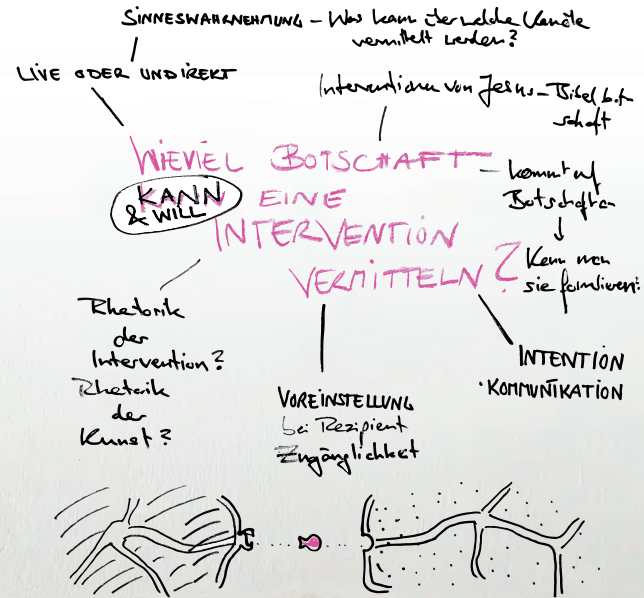 SINNESWAHRNEHMUNG – Was kann über welche Kanäle
vermittelt werden?
LIVE ODER UNDIREKT
Interventionen von Jesus – Bibelbot
schaft
WIEVIEL BOTSCHAFT
KANN EINE
& WILL
INTERVENTION
VERMITTELN?
kommt auf
Botschaft an
Kann man
sie formulieren?
Rhetorik
der
Intervention?
Rhetorik
der
Kunst?
VOREINSTELLUNG
bei Rezipient
Zugänglichkeit
INTENTION
·KOMMUNIKATION